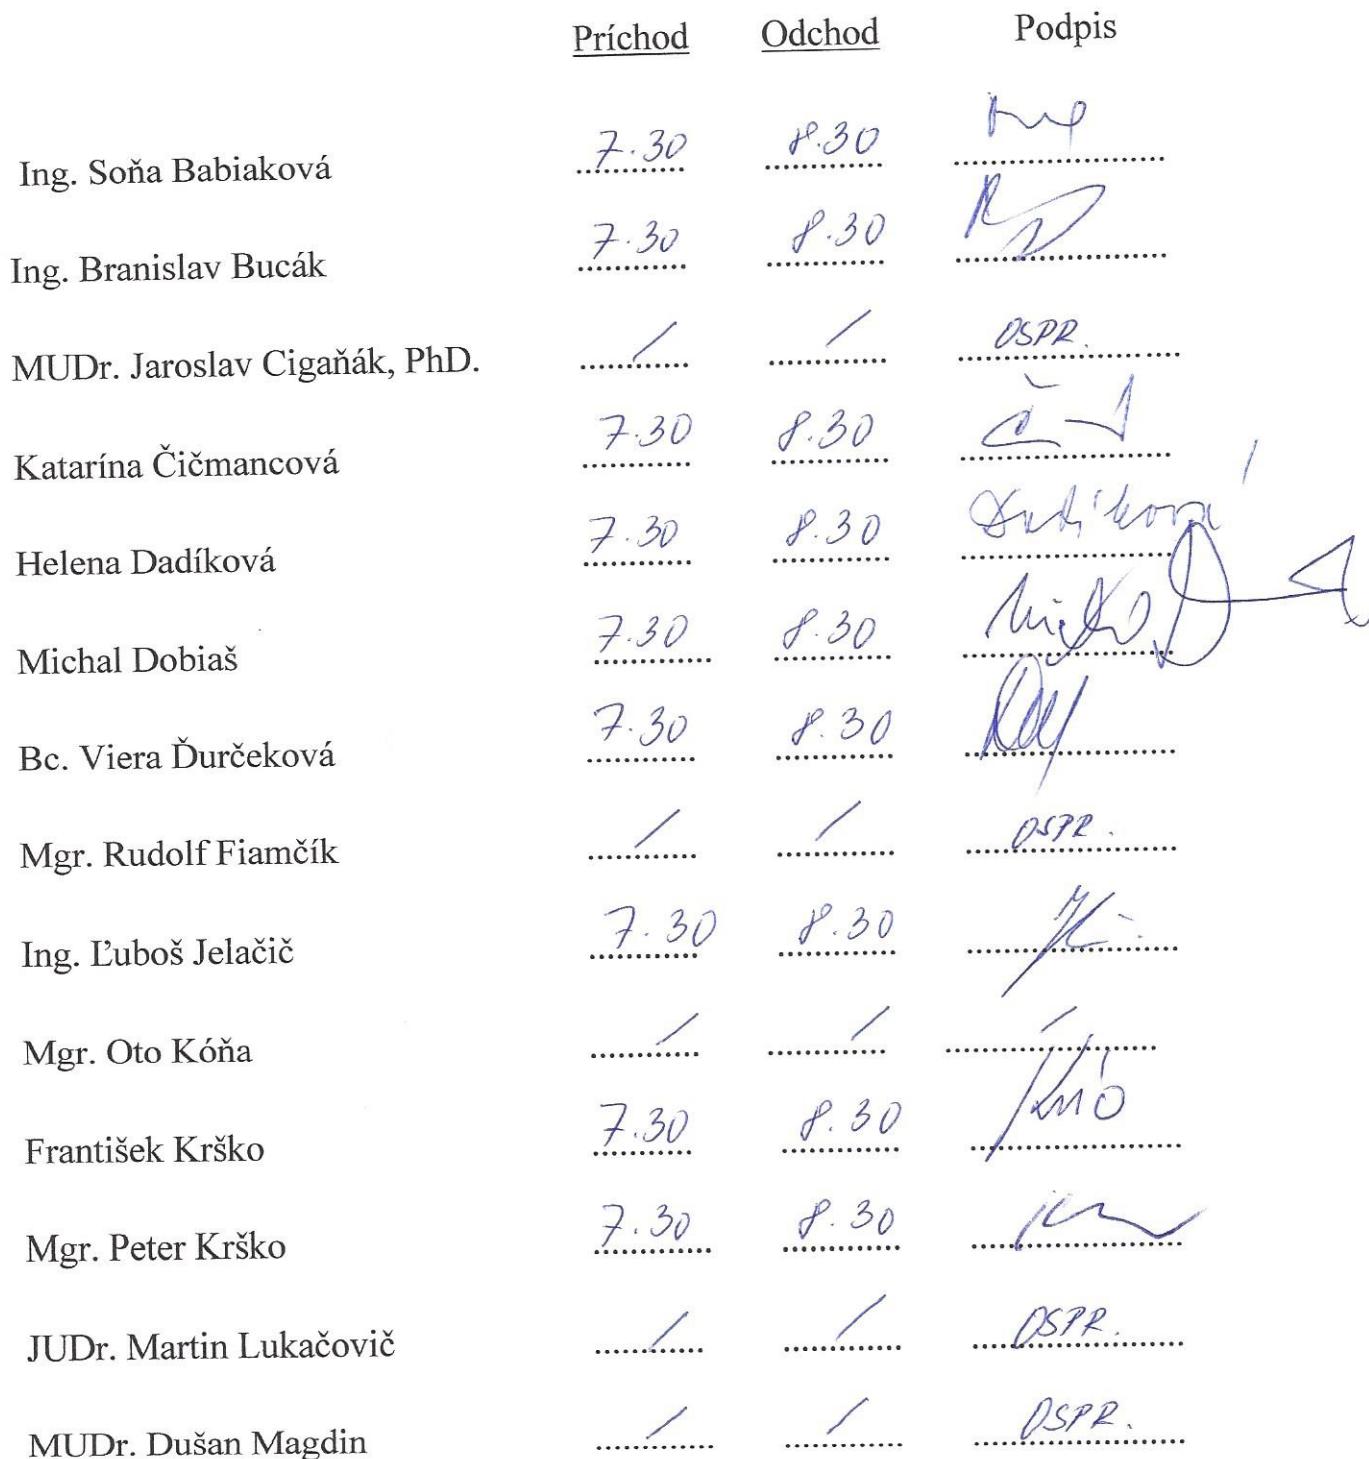 Príchod Odchod Podpis
Ing. Soňa Babiaková 7.30 8.30
Ing. Branislav Bucák 7.30 8.30
MUDr. Jaroslav Cigaňák, PhD. / / OSPR.
Katarína Čičmancová 7.30 8.30
Helena Dadíková 7.30 8.30 Dadíková
Michal Dobiaš 7.30 8.30
Bc. Viera Ďurčeková 7.30 8.30
Mgr. Rudolf Fiamčík / / OSPR.
Ing. Ľuboš Jelačič 7.30 8.30
Mgr. Oto Kóňa / / /
František Krško 7.30 8.30
Mgr. Peter Krško 7.30 8.30
JUDr. Martin Lukačovič / / OSPR.
MUDr. Dušan Magdin / / OSPR.